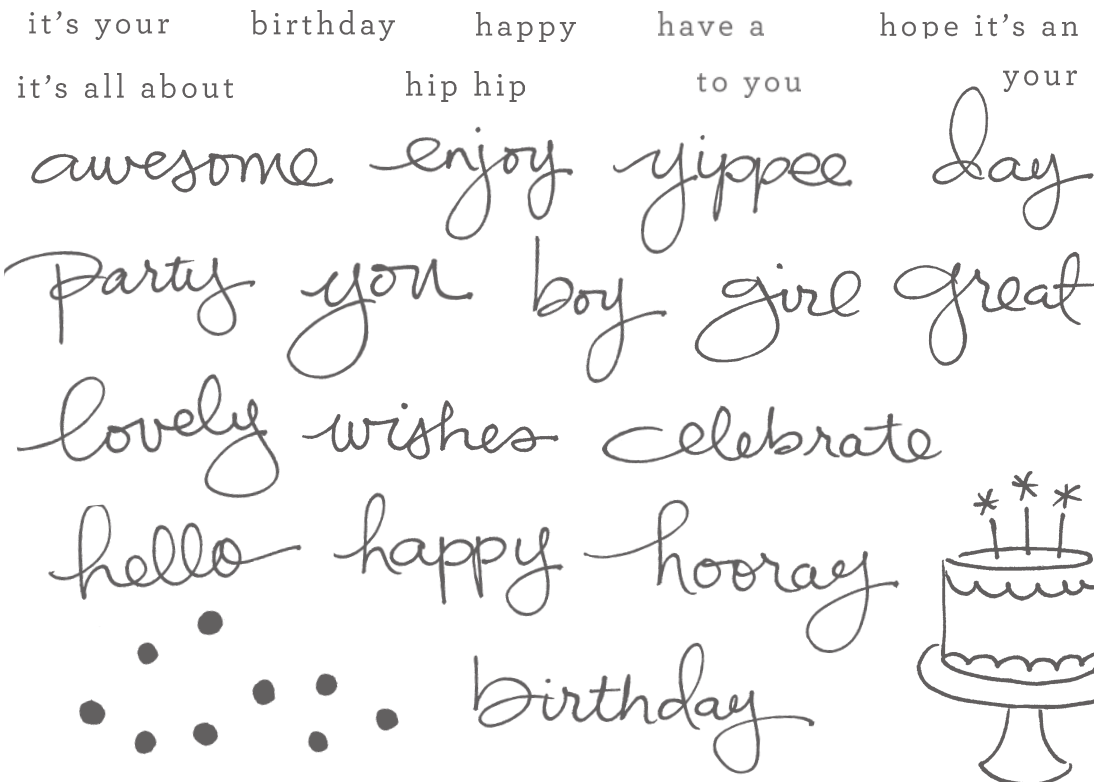 it's your birthday happy have a hope it's an
it's all about hip hip to you your
awesome enjoy yippee day
party you boy girl great
lovely wishes celebrate
hello happy hooray
birthday